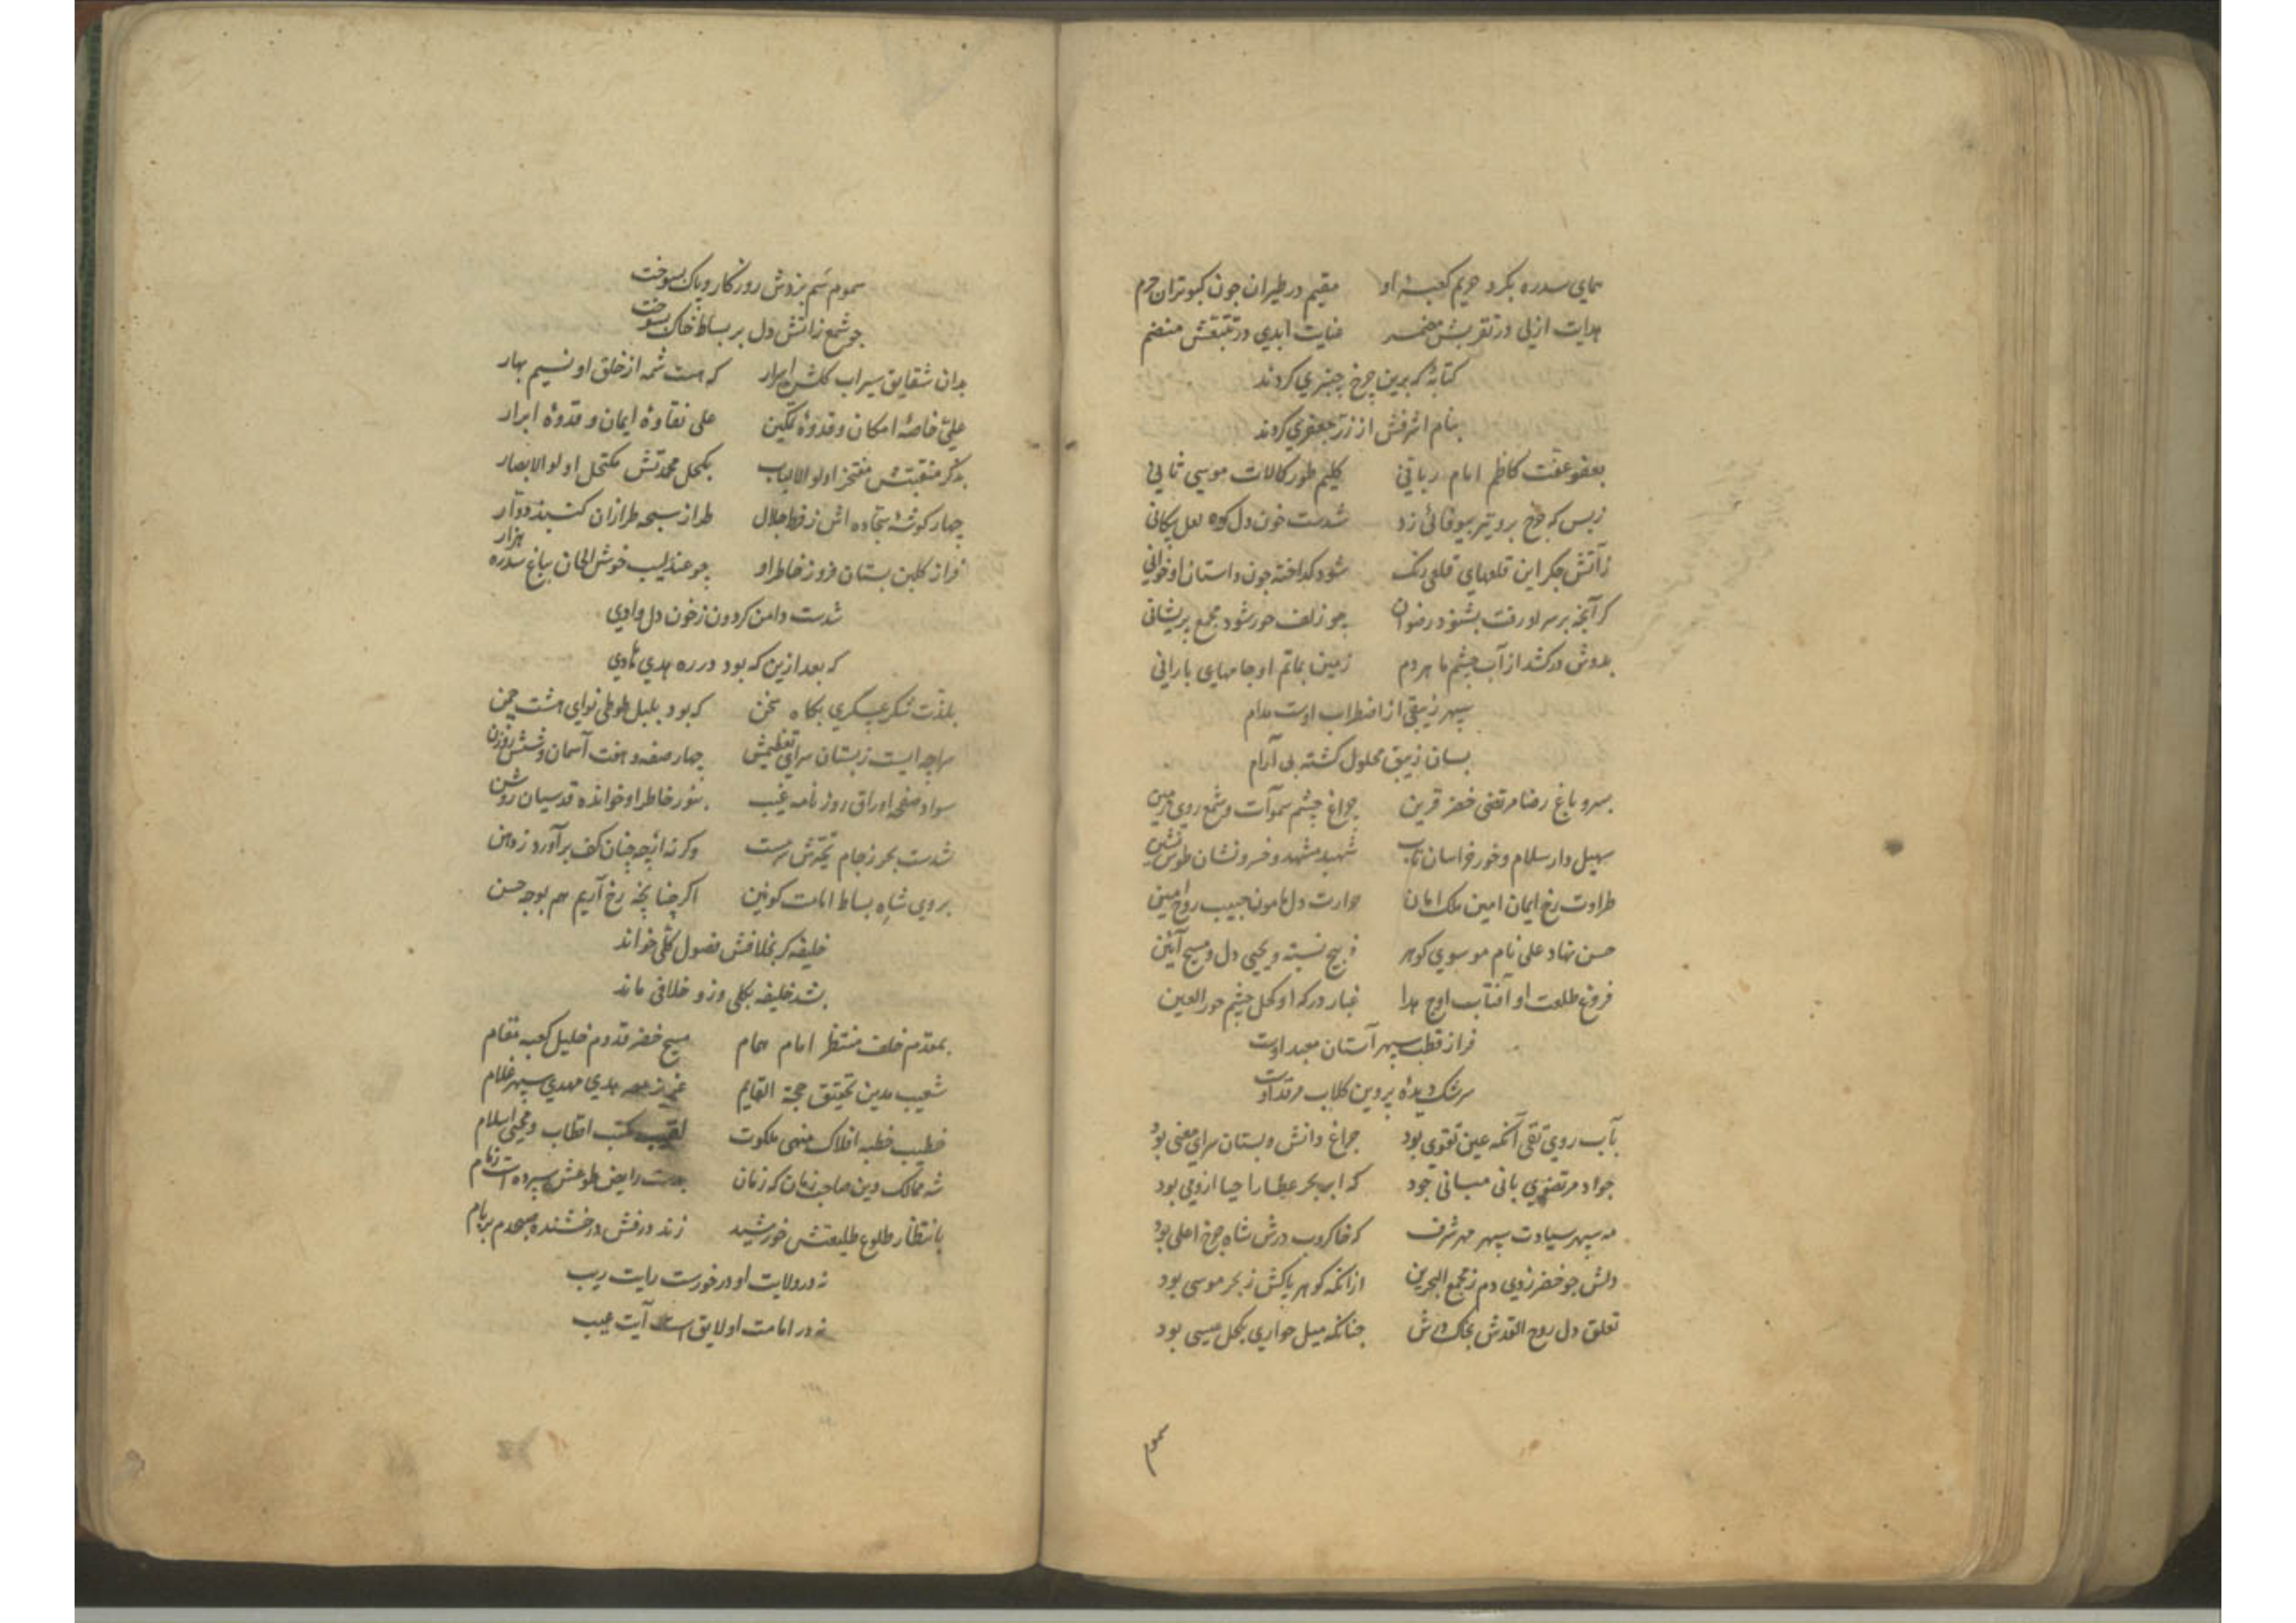 همای سدره بکرد حریم کعبهٔ او مقیم در طیران چون کبوتران حرم
هدایت ازلی در تقربش مضمر عنایت ابدی در تتبعش منضم
کتابهٔ که برین چرخ چنبری کردند
بنام اشرفش از زر جعفری کردند
بعفو عفت کاظم امام ربانی کلیم طور کمالات موسی ثانی
زبس که چرخ برو تیر بیوفائی زد شدست خون دل کوه لعل پیکانی
زآتش جکر این قلعهای قلعی رنک شود کداخته چون داستان او خوانی
کر آنچه بر سر او رفت بشنود رضوان چو زلف حور شود مجمع پریشانی
بدوش درکشد از آب چشم ما هر دم زمین بماتم او جامهای بارانی
سپهر زیبقی از اضطراب اوست مدام
بسان زیبق محلول کشته بی آرام
بسرو باغ رضا مرتضی خضر قرین چراغ چشم سموات و شمع روی زمین
سهیل دار سلام و خور خراسان تاب شهید مشهد و خسرونشان طوس نشین
طراوت رخ ایمان امین ملک امان حرارت دل مامون حبیب روح امین
حسن نهاد علی نام موسوی کوهر ذبیح نسبه و یحیی دل و مسیح آئین
فروغ طلعت او آفتاب اوج هدا غبار درکه او کحل چشم حورالعین
فراز قطب سپهر آستان معبد اوست
سرشک دیدهٔ پروین کلاب مرقد اوست
بآب روی تقی آنکه عین تقوی بود چراغ دانش و بستان سرای معنی بود
جواد مرتضوی بانی مبانی جود که ابر بحر عطا را حیا ازوی بود
مه سپهر سیادت سپهر مهر شرف که خاکروب درش شاه چرخ اعلی بود
دلش چو خضر زدی دم ز مجمع البحرین ازانکه کوهر پاکش ز بحر موسی بود
تعلق دل روح القدس بخاک درش چنانکه میل حواری بکحل عیسی بود
سموم
سموم سم بزدش روزکار و پاک بسوخت
چو شمع زآتش دل بر بساط خاک بسوخت
بدان شقایق سیراب کلشن ابرار که هست شمه از خلق او نسیم بهار
علی خاصهٔ امکان و قدوهٔ تمکین علی نقاوهٔ ایمان و قدوهٔ ابرار
بذکر منقبتش مفتخر اولوالالباب بکحل محمدتش مکتحل اولوالابصار
چهار کوشهٔ سجاده اش ز فرط جلال طراز سبحه طرازان کنبد دوار
فراز کلبن بستان فروز خاطر او چو عندلیب خوش الحان بباغ سدره هزار
شدست دامن کردون زخون دل وادی
که بعد ازین که بود در ره هدی هادی
بلذت شکر عسکری بکاه سخن که بود بلبل طوطی نوای هشت چمن
سراچه ایست زبستان سرای تعظیمش چهار صفه و هفت آسمان و شش روزن
سواد صفحه اوراق روزنامه غیب بنور خاطر او خوانده قدسیان روشن
شدست بحر زجام تبحرش سرمست وکرنه ازچه چنان کف برآورد زدهن
بروی شاه بساط امامت کونین اکر چنانچه رخ آریم هم بوجه حسن
خلیفه کر بخلافش فصول کلی خواند
بشد خلیفه بکلی وزو خلافی ماند
بمقدم خلف منتظر امام همام مسیح خضر قدوم خلیل کعبه مقام
شعیب مدین تحقیق حجة القایم عزیز مصر هدی مهدی سپهر غلام
خطیب خطبه افلاک منهی ملکوت مکتب اقطاب و محیی اسلام
شه ممالک دین صاحب زمان که زمان بدست رایض طوعش سپرده است زمام
بانتظار طلوع طلیعتش خورشید زند درفش درخشنده صبحدم بر بام
نه در ولایت او درخورست رایت ریب
نه در امامت او لایق است آیت عیب